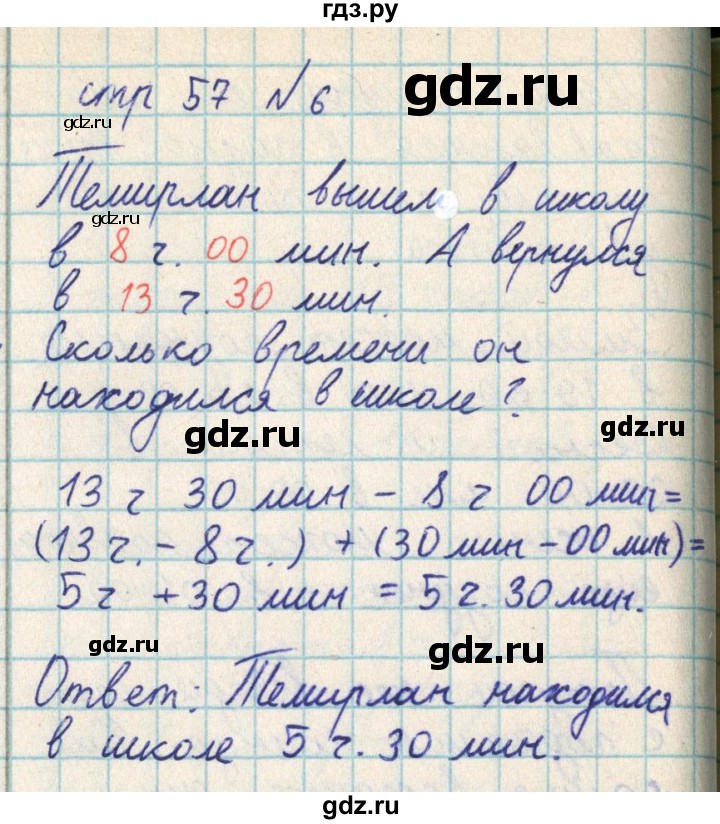 гдз.ру
стр 57 №6
gdz.ru
gdz.ru
Темирлан вышел в школу
gdz.ru
в 8 ч. 00 мин. А вернулся
в 13 ч. 30 мин.
Сколько времени он
находился в школе?
gdz.ru
gdz.ru
13 ч 30 мин - 8 ч 00 мин =
(13 ч. - 8 ч.) + (30 мин - 00 мин) =
5 ч + 30 мин = 5 ч. 30 мин.
gdz.ru
gdz.ru
Ответ: Темирлан находился
в школе 5 ч. 30 мин.
gdz.ru